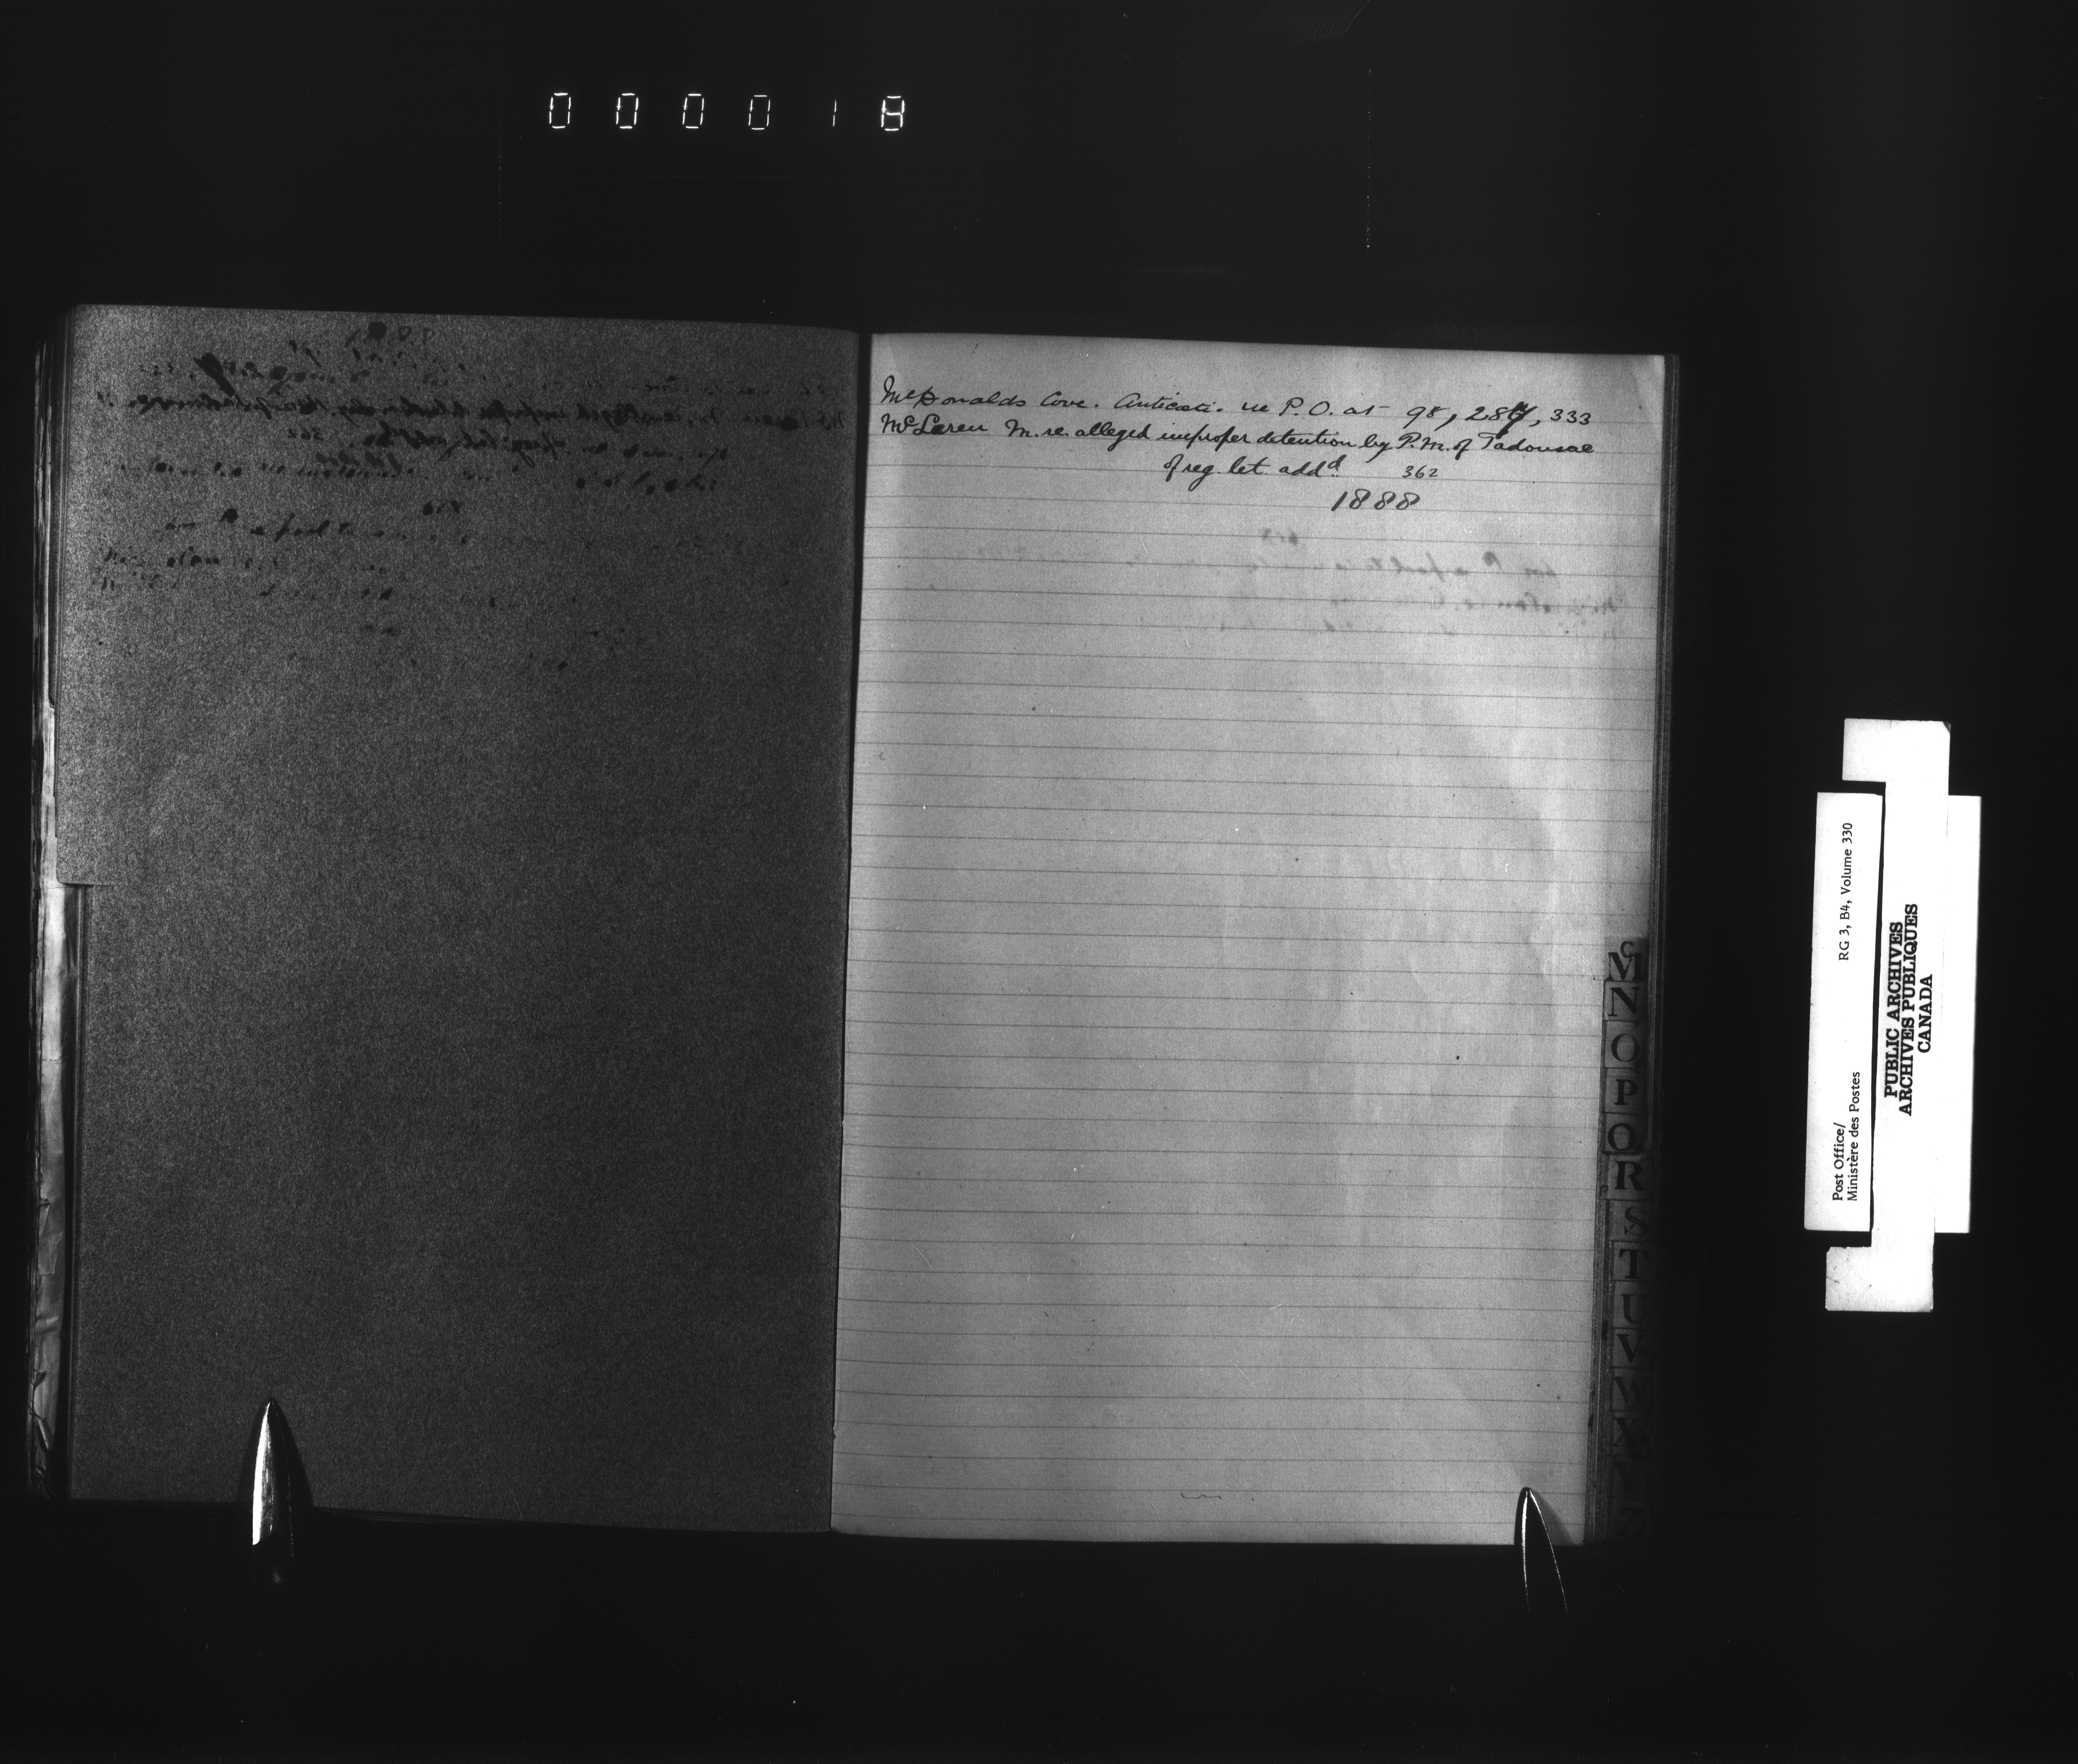 000018
McDonalds Cove. Anticosti. re P. O. at 98, 287, 333
McLaren M. re. alleged improper detention by P. M. of Tadousac
of reg. let. addd. 362
1888
Mc
N
O
P
Q
R
S
T
U
V
W
X
Z
Post Office/
Ministère des Postes
RG 3, B4, Volume 330
PUBLIC ARCHIVES
ARCHIVES PUBLIQUES
CANADA